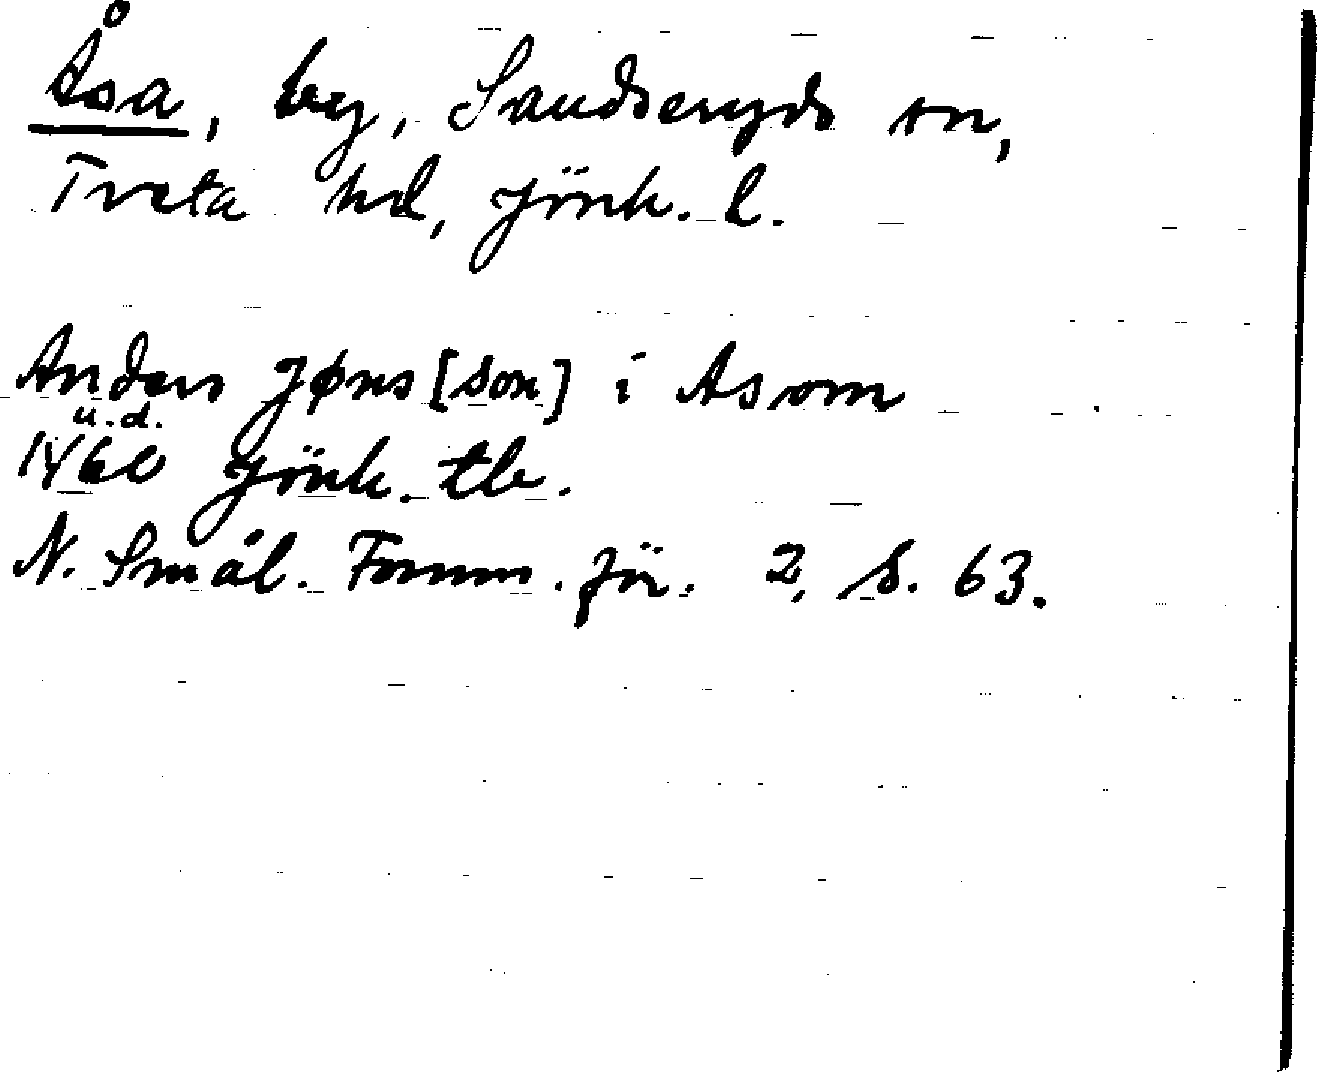 Åsa, by, Sandseryds sn,
Tveta hd, Jönk. l.
Anders Jøns [son] i Asom
u.d.
1460 Jönk. tb.
N. Smål. Fornm. för. 2, s. 63.